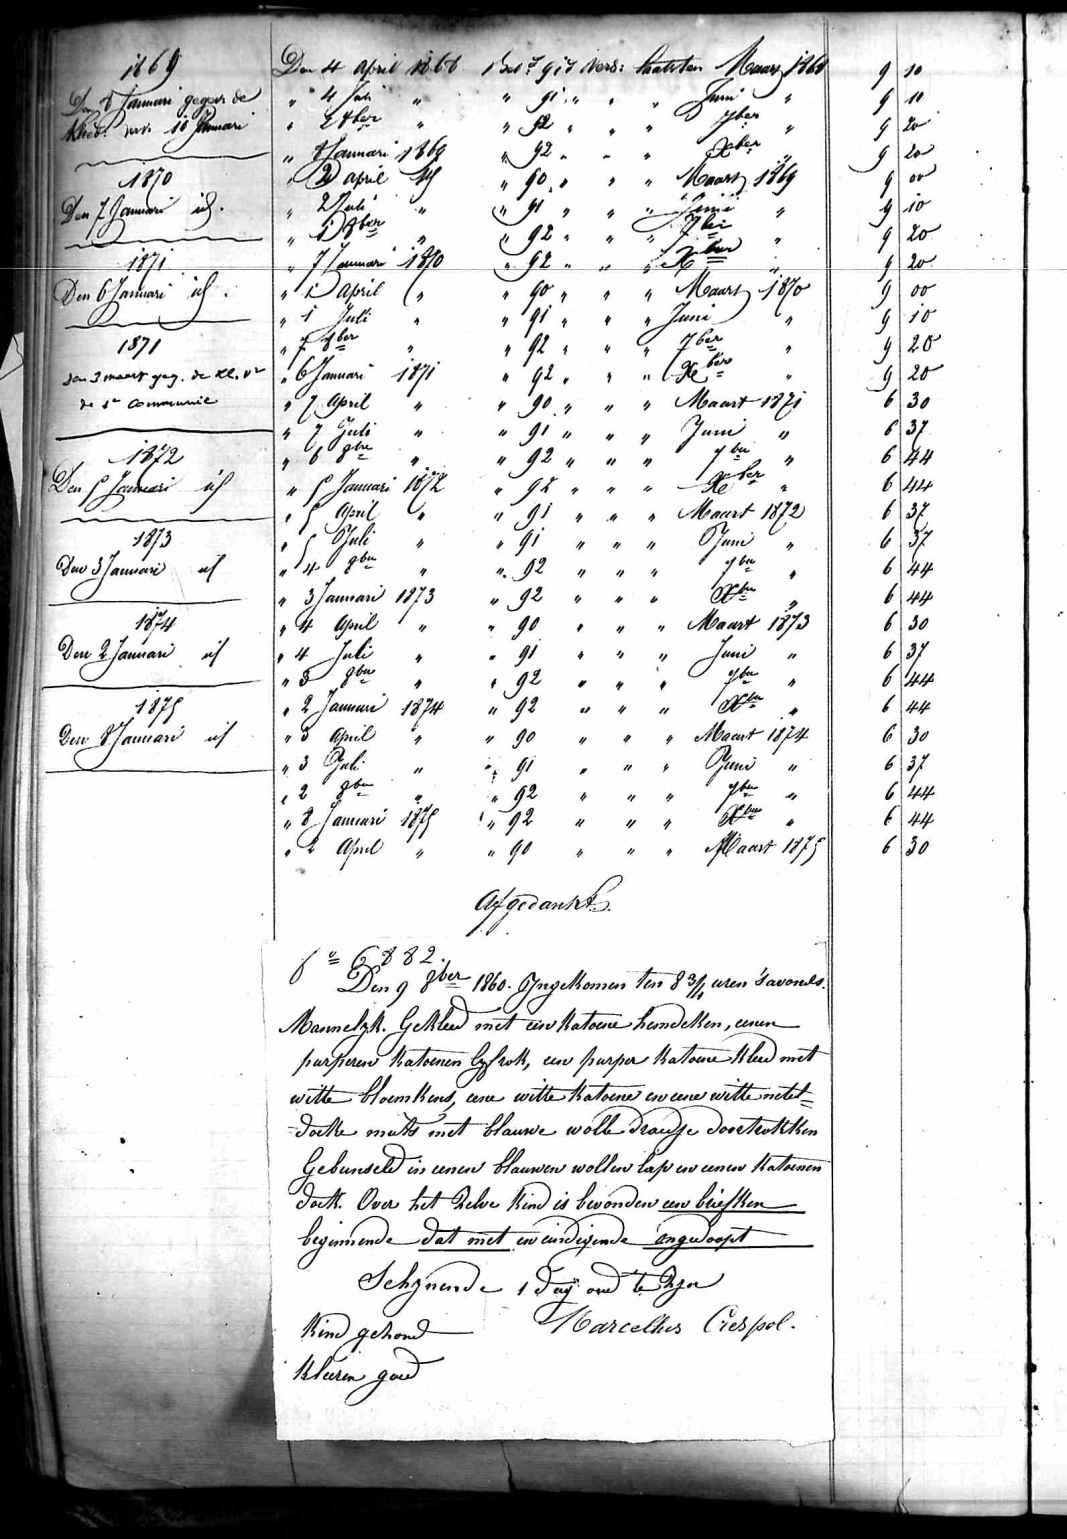 1869
Den 8 Januari gegev. de
kleed. 
1870
Den 7 Januari id.
1871
Den 6 Januari id.
1871
den 3 maart geg. de kl. vr
de 1e Communie
1872
Den 5 Januari id
1873
Den 3 Januari id
1874
Den 2 Januari id
1875
Den 8 Januari id
Den 4 April 1868 1 91 verv: laatsten Maart 1868 9 10
" 4 Juli " " 91 " " " Juni " 9 10
" 2 8ber " " 92 " " " 7ber " 9 20
" 8 Januari 1869 " 92 " " " Xber " 9 20
" 2 April " 90 " " " Maart 1869 9 00
" 2 Juli " " 91 " " " Juni " 9 10
" 1 8ber " 92 " " " 7ber " 9 20
" 7 Januari 1870 " 92 " " " Xber " 9 20
" 1 April " " 90 " " " Maart 1870 9 00
" 1 Juli " " 91 " " " Juni " 9 10
" 7 8ber " " 92 " " " 7ber " 9 20
" 6 Januari 1871 " 92 " " " Xber 9 20
" 7 April " " 90 " " " Maart 1871 6 30
" 7 Juli " " 91 " " " Juni " 6 37
" 6 8bre " " 92 " " " 7ber " 6 44
" 5 Januari 1872 " 92 " " " Xber " 6 44
" 5 April " " 91 " " " Maart 1872 6 37
" 5 Juli " " 91 " " " Juni " 6 37
" 4 8ber " " 92 " " " 7ber " 6 44
" 3 Januari 1873 " 92 " " " Xber " 6 44
" 4 April " " 90 " " " Maart 1873 6 30
" 4 Juli " " 91 " " " Juni " 6 37
" 3 8ber " " 92 " " " 7ber " 6 44
" 2 Januari 1874 " 92 " " " Xber " 6 44
" 3 April " " 90 " " " Maart 1874 6 30
" 3 Juli " " 91 " " " Juni " 6 37
" 2 8ber " " 92 " " " 7ber " 6 44
" 8 Januari 1875 " 92 " " " Xber " 6 44
" 2 April " " 90 " " " Maart 1875 6 30
Afgedankt.
6882.
Den 9 8ber 1860. Ingekomen ten 8 3/4 uren 's avonds.
Mannelyk. Gekleed met een katoene hemdeken, eenen
purperen katoenen lyfrok, een purper katoene kleed met
witte bloemkens, eene witte katoene en eene witte netel-
doeke muts met blauwe wolle draedje doortrokken
Gebunseld in eenen blauwen wollen lap en eenen katoenen
doek. Over het zelve kind is bevonden een briefken
beginnende dat met en eindigende ongedoopt
Schynende 1 dag oud te zyn
kind gezond Marcellus Crespol.
kleeren goed